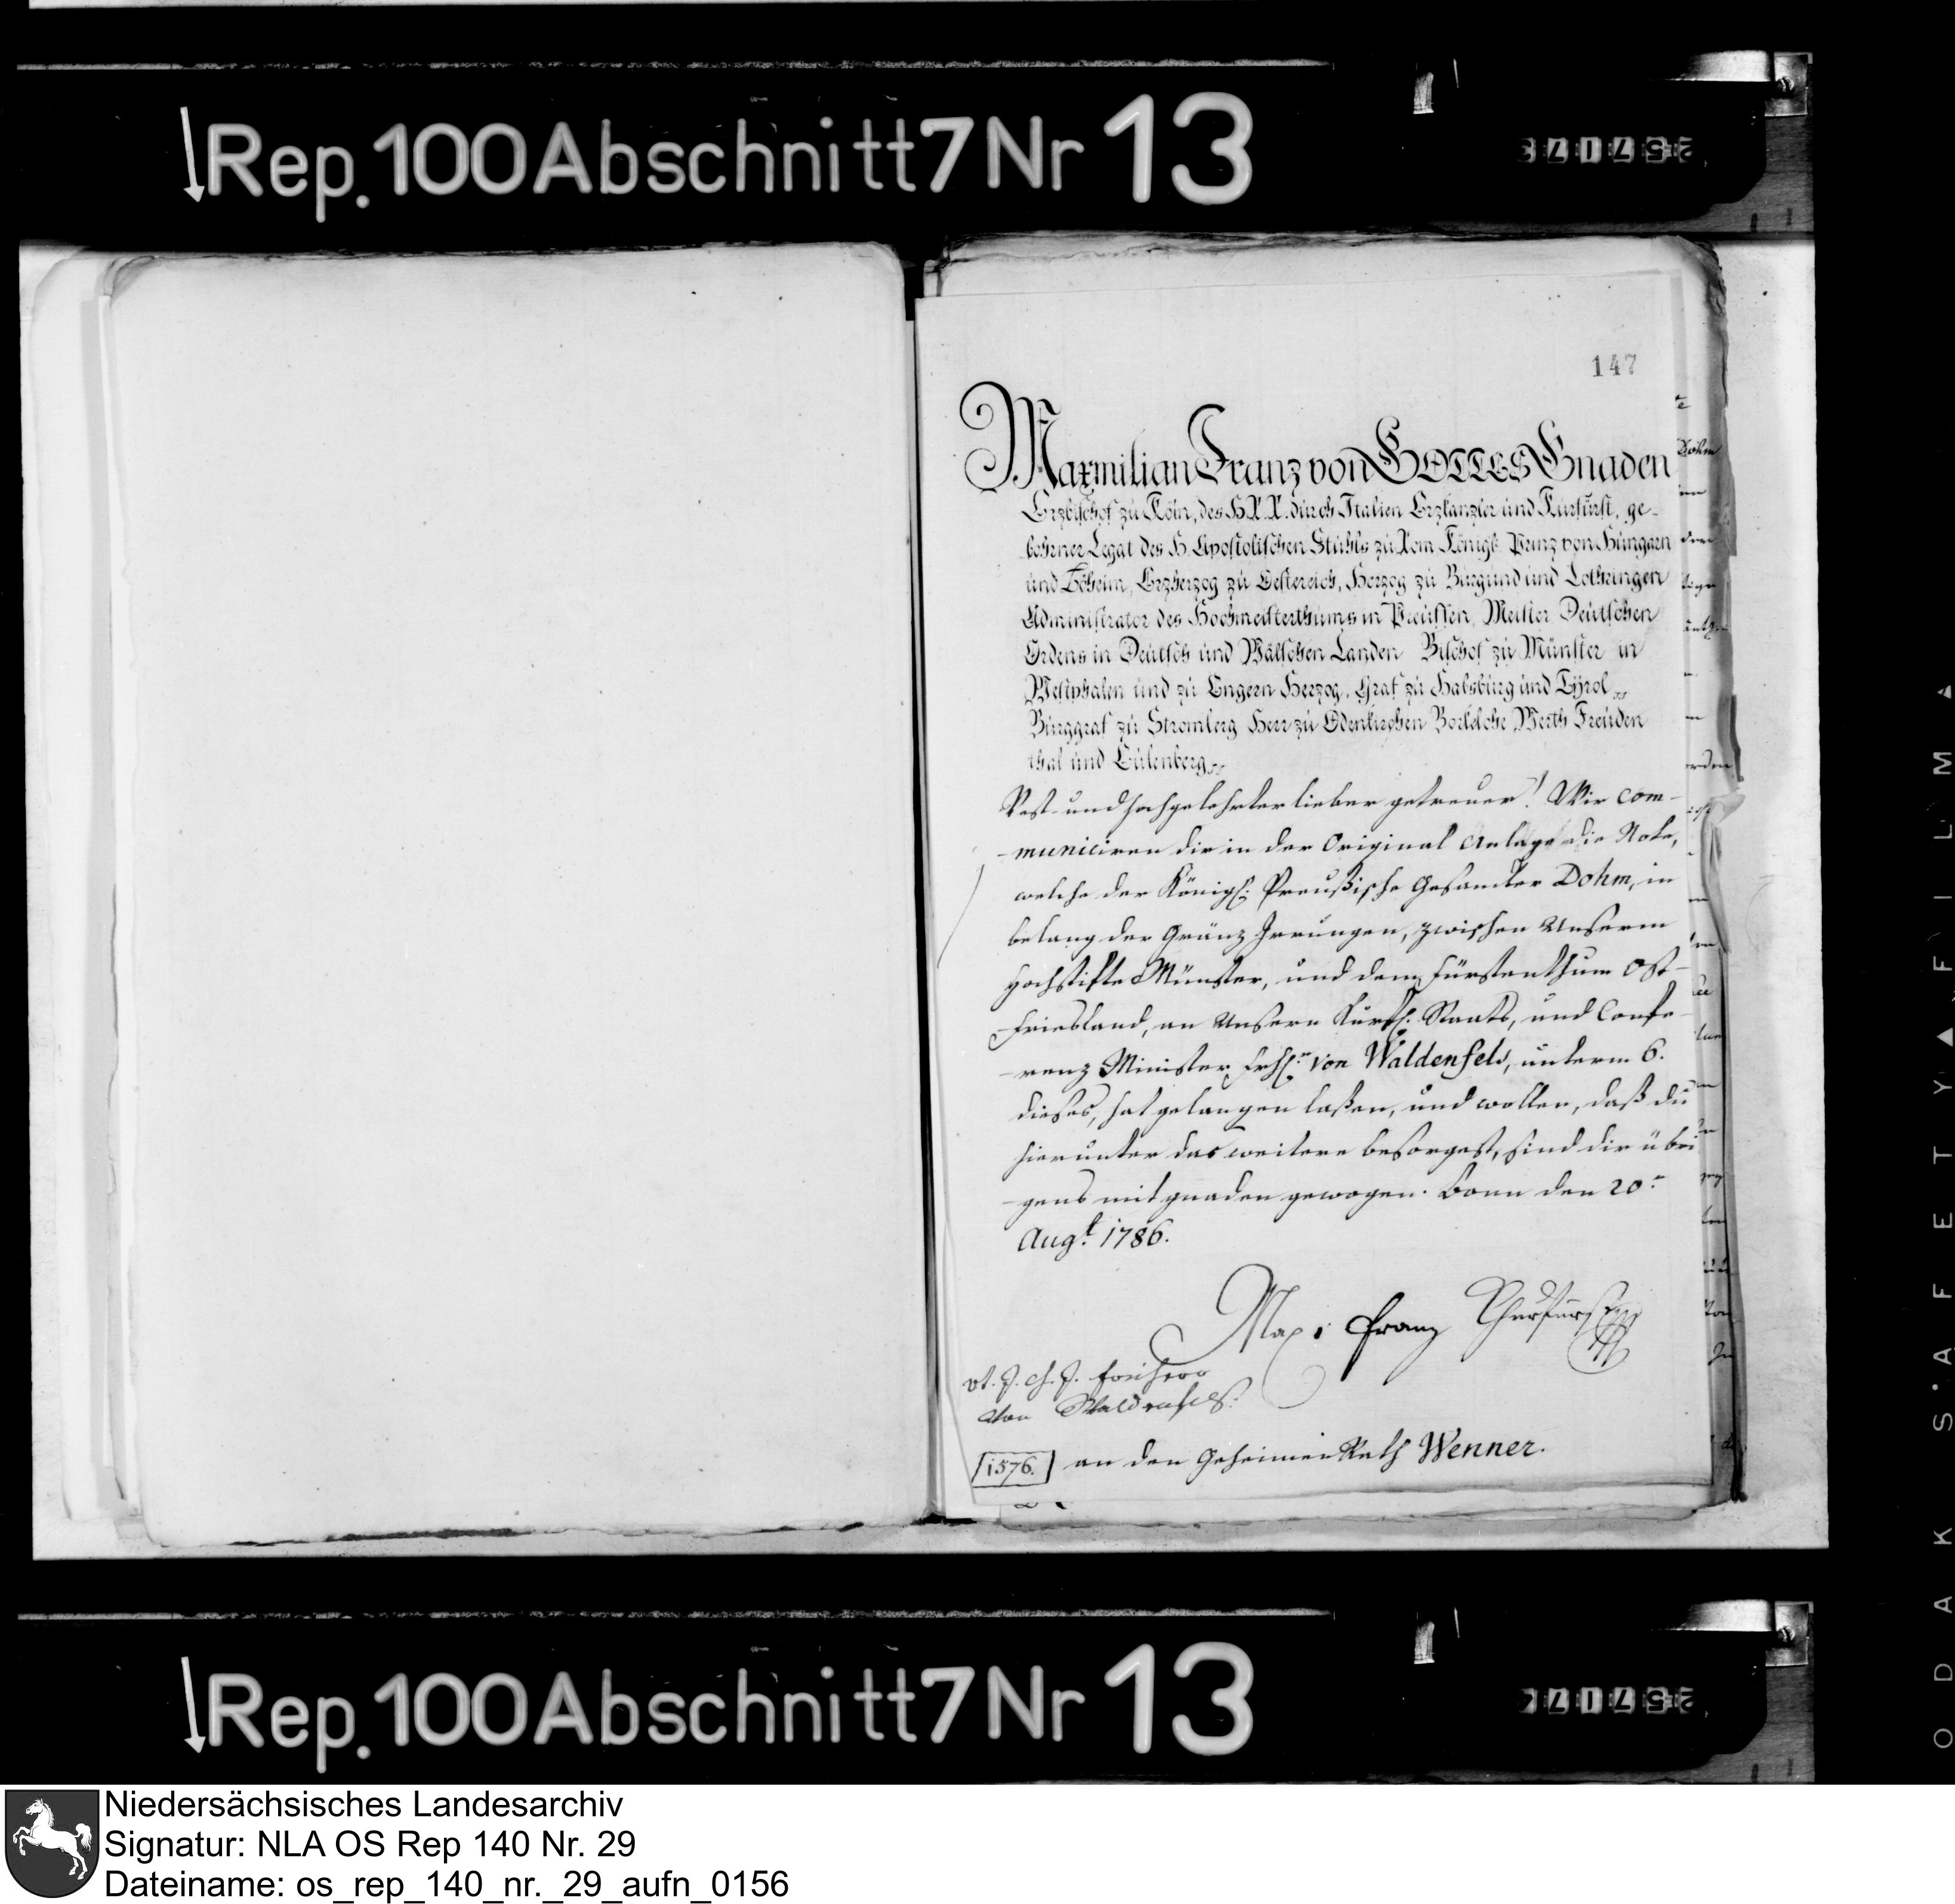 Rep. 100 Abschnitt 7 Nr 13
147
Maximilian Franz von GOTTES Gnaden
Erzbischof zu Köln, des H. R. R. durch Italien Erzkanzler und Kurfürst, ge-
bohrner Legat des H. Apostolischen Stuhls zu Rom Königl. Prinz von Hungarn
und Böheim, Erzherzog zu Oesterreich, Herzog zu Burgund und Lothringen
Administrator des Hochmeisterthums in Preussen, Meister Deutschen
Ordens in Deutsch und Wälschen Landen Bischof zu Münster in
Westphalen und zu Engern Herzog, Graf zu Habsburg und Tyrol
Burggraf zu Stromberg Herr zu Odenkirchen Borkelohe Werth Freuden
thal und Eulenberg
Vest- und hochgelehrter lieber getreuer! Wir com-
-municiren dir in der Original Anlage die Note,
welche der Königl: Preußische Gesandter Dohm, in
belang der Gränz Irrungen, zwischen Unserm
Hochstifte Münster, und dem Fürstenthum Ost-
-friesland, an Unsern Kurfl: Staats, und Confe-
-renz Minister Frhl:n von Waldenfels, unterm 6.
dieses, hat gelangen laßen, und wollen, daß du
hierunter das weitere besorgest, sind dir übri
-gens mit gnaden gewogen. Bonn den 20:n
Aug:t 1786.
Max: Franz Churfürst
vt. J. Ch. F. Freiherr
von Waldenfels
1576. an den Geheimen Rath Wenner.
Rep. 100 Abschnitt 7 Nr 13
KODAK SAFETY FILM
Niedersächsisches Landesarchiv
Signatur: NLA OS Rep 140 Nr. 29
Dateiname: os_rep_140_nr._29_aufn_0156